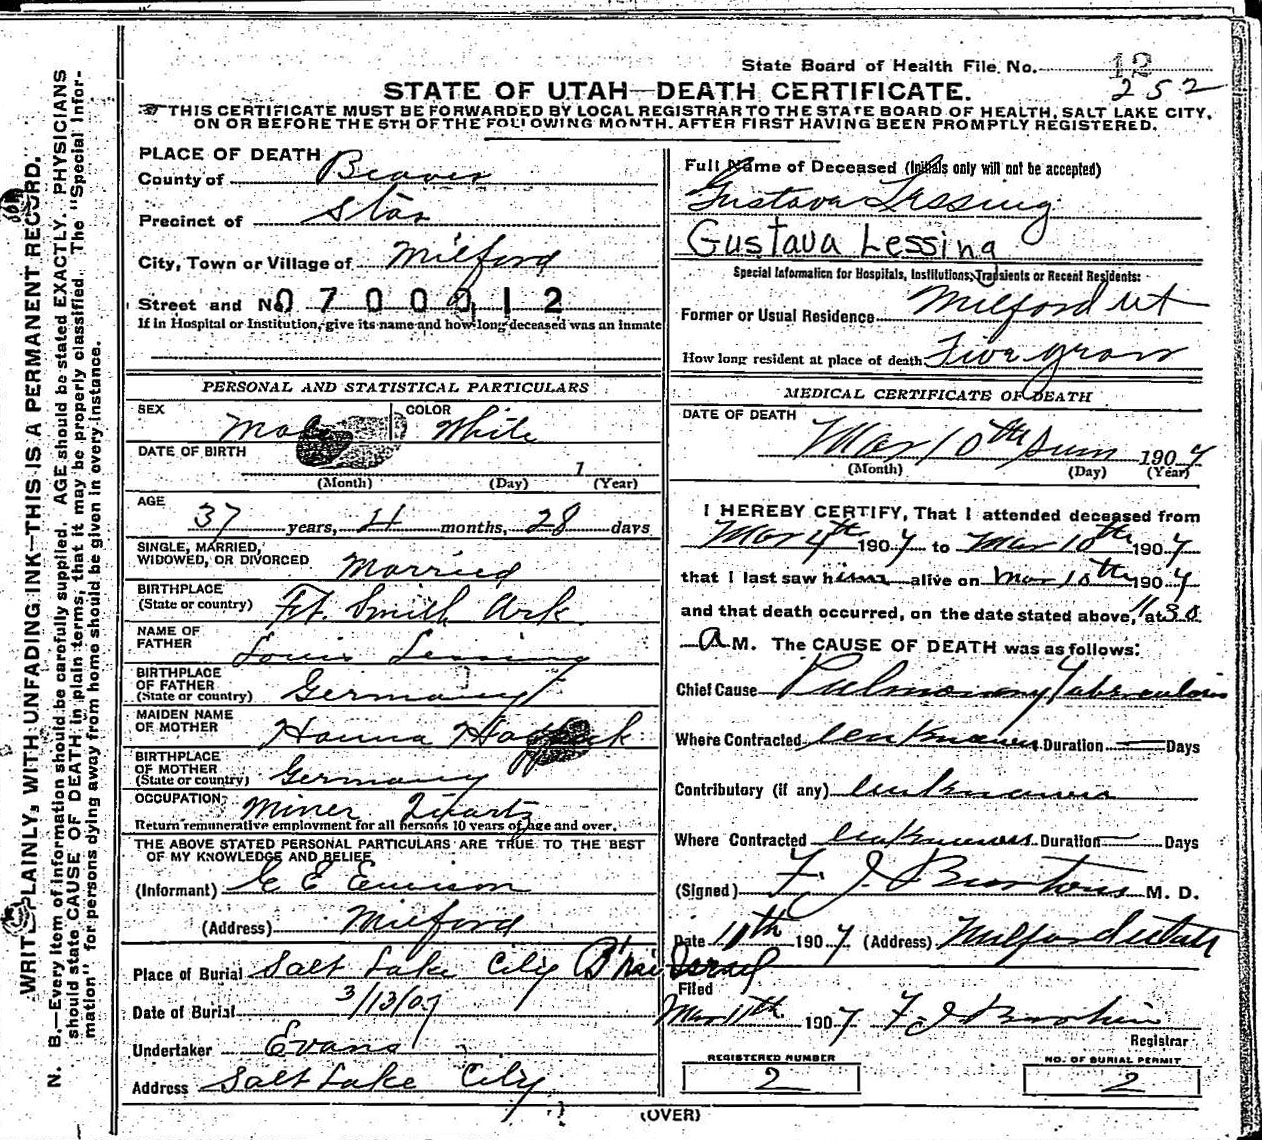 State Board of Health File No. 12
252
STATE OF UTAH—DEATH CERTIFICATE.
THIS CERTIFICATE MUST BE FORWARDED BY LOCAL REGISTRAR TO THE STATE BOARD OF HEALTH, SALT LAKE CITY,
ON OR BEFORE THE 5TH OF THE FOLLOWING MONTH, AFTER FIRST HAVING BEEN PROMPTLY REGISTERED.
WRITE PLAINLY, WITH UNFADING INK—THIS IS A PERMANENT RECORD.
N. B.—Every item of information should be carefully supplied. AGE should be stated EXACTLY. PHYSICIANS
should state CAUSE OF DEATH in plain terms, that it may be properly classified. The "Special Infor-
mation" for persons dying away from home should be given in every instance.
PLACE OF DEATH
County of Beaver
Precinct of Star
City, Town or Village of Milford
Street and No. 0700012
If in Hospital or Institution, give its name and how long deceased was an inmate
PERSONAL AND STATISTICAL PARTICULARS
SEX Male COLOR White
DATE OF BIRTH 1
(Month) (Day) (Year)
AGE
37 years, 4 months, 28 days
SINGLE, MARRIED,
WIDOWED, OR DIVORCED Married
BIRTHPLACE
(State or country) Ft. Smith Ark.
NAME OF
FATHER Louis Lessing
BIRTHPLACE
OF FATHER
(State or country) Germany
MAIDEN NAME
OF MOTHER Hanna
BIRTHPLACE
OF MOTHER
(State or country) Germany
OCCUPATION Miner Quartz
Return remunerative employment for all persons 10 years of age and over.
THE ABOVE STATED PERSONAL PARTICULARS ARE TRUE TO THE BEST
OF MY KNOWLEDGE AND BELIEF
(Informant) E E
(Address) Milford
Place of Burial Salt Lake City B'nai Israel
Date of Burial 3/13/07
Undertaker Evans
Address Salt Lake City
Full Name of Deceased (Initials only will not be accepted)
Gustava Lessing
Gustava Lessing
Special Information for Hospitals, Institutions, Transients or Recent Residents:
Former or Usual Residence Milford Ut
How long resident at place of death Five years
MEDICAL CERTIFICATE OF DEATH
DATE OF DEATH
Mar 10th Sun 1907
(Month) (Day) (Year)
I HEREBY CERTIFY, That I attended deceased from
Mar 4th 1907 to Mar 10th 1907
that I last saw him alive on Mar 10th 1907
and that death occurred, on the date stated above, at 11 30
A M. The CAUSE OF DEATH was as follows:
Chief Cause Pulmonary Tuberculosis
Where Contracted unknown Duration — Days
Contributory (if any) unknown
Where Contracted unknown Duration — Days
(Signed) F. J. M. D.
Date 11th 1907 (Address) Milford Utah
Filed
Mar 11th 1907 F. J.
Registrar
REGISTERED NUMBER
2
NO. OF BURIAL PERMIT
2
(OVER)